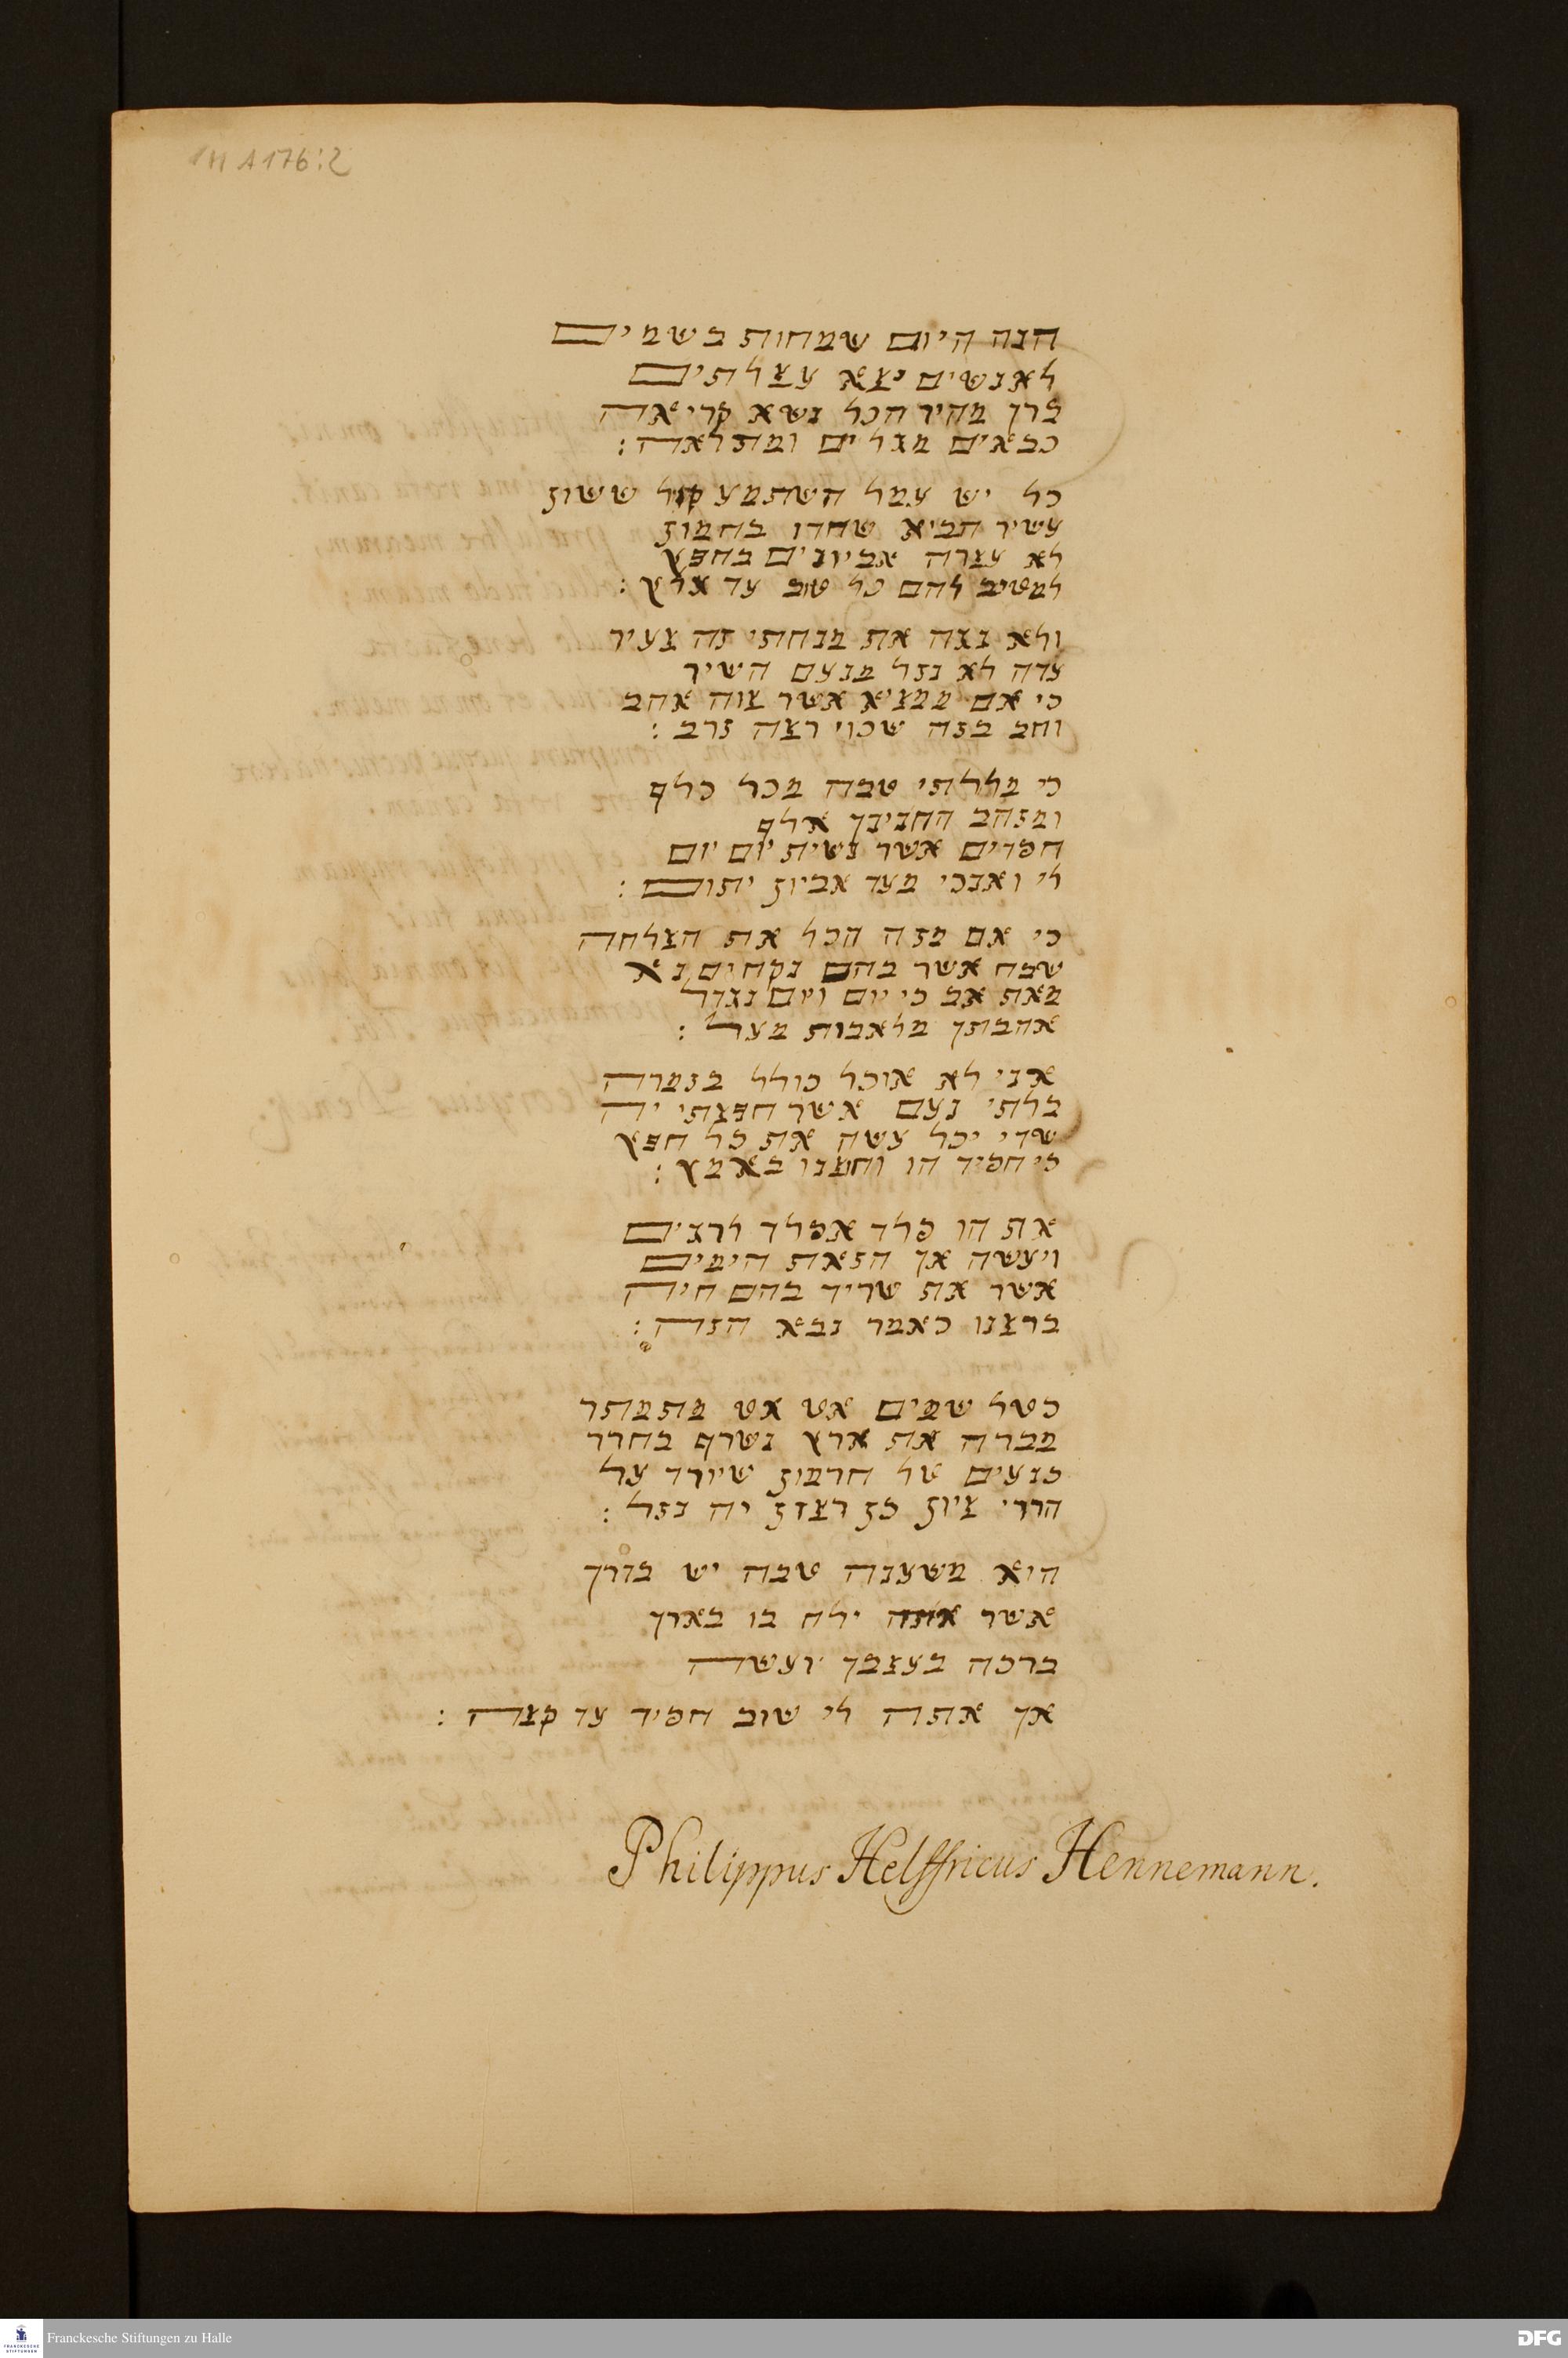 1 H A 176:2
הנה היום שמחות בשמים
לאנשים יצא עצלתים
ברך מהיר הכל נשא קריאה
כבאים מגלים ומתלאה:
כל יש עמל השתמע קול ששון
עשיר הביא שחדו בהמון
לא עצרה אביונים בחפץ
למשיב להם כל טוב עד ארץ:
ולא נצה את מנחתי זה צעיר
עדה לא נזל מנעם השיר
כי אם ממציא אשר צוה אהב
וחב בזה שכוי רצה זרב:
כי מללתי טבה מכל כלף
ומזהב החנינך אלף
חסדים אשר נשית יום יום
לי ואנכי בעד אביון יתום:
כי אם בזה הכל את הצלחה
שבח אשר בהם נקחים נא
מאת אב כי יום ויום נגדל
אהבתך מלאכות מעל:
אני לא אוכל כולל בזמרה
בלתי נעם אשר חפצתי יה
שדי יכל עשה את כל חפץ
כי חסיד הו וחמנו באמץ:
את הו סלד אסלד לרגים
ויעשה אך הזאת הימים
אשר את שריד בהם חיה
ברצנו כאמר נבא הזה:
כטל שמים אט אט מתמתר
מברה את ארץ נשרף בחרר
כנעים של חרמון שיורד על
הררי ציון כן רצון יה נזל:
היא משענה טבה יש בדרך
אשר אתה ילח בו בארך
ברכה בעצבך יועשה
אך אתה לי שוב חסיד עד קצה:
Philippus Helffricus Hennemann.
Franckesche Stiftungen zu Halle
DFG